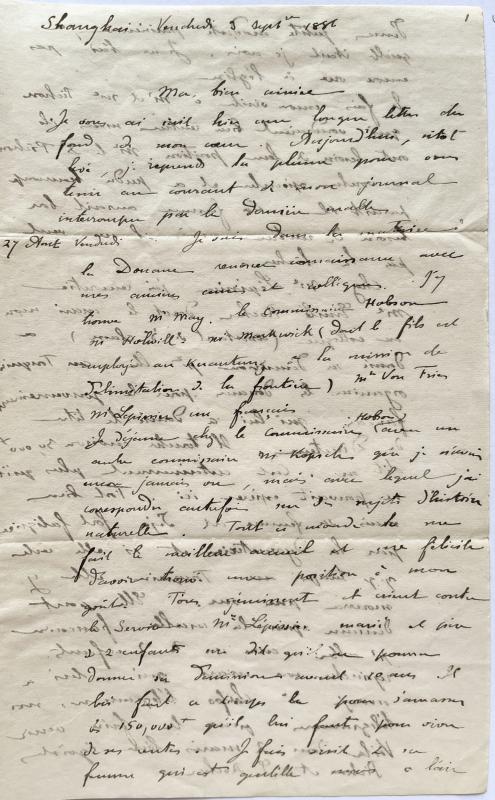 Shanghai Vendredi 3 Septbre 1886
1
Ma bien aimée
Je vous ai écrit hier une longue lettre du
fond de mon cœur. Aujourd'hui, sitôt
levé, je reprends la plume pour vous
tenir au courant de mon journal
interrompu par la dernière malle.
27 Août Vendredi. Je suis dans la matinée à
la Douane renouer connaissance avec
mes anciens amis et collègues. J'y
trouve Mr May, le Commissaire Hobson
Mr Holwill, Mr Markwick (dont le fils est
employé au Kuantung à la mission de
Délimitation de la frontière) Mr Von Fries
Mr Lépissier un français
Je déjeune chez le commissaire Hobson avec un
autre commissaire Mr Kopsch que je n'avais
encore jamais vu, mais avec lequel j'ai
correspondu autrefois sur des sujets d'histoire
naturelle. Tout ce monde-là me
fait le meilleur accueil et me félicite
d'avoir trouvé une position à mon
goût. Tous gémissent et crient contre
le Service. Mr Lépissier marié et père
de 2 enfants me dit qu'il ne pourra
donner sa Démission avant 10 ans. Il
lui faut ce temps là pour s'amasser
les 150,000f qu'il lui faut pour vivre
de ses rentes. Je fais visite à sa
femme qui est gentille mais a l'air